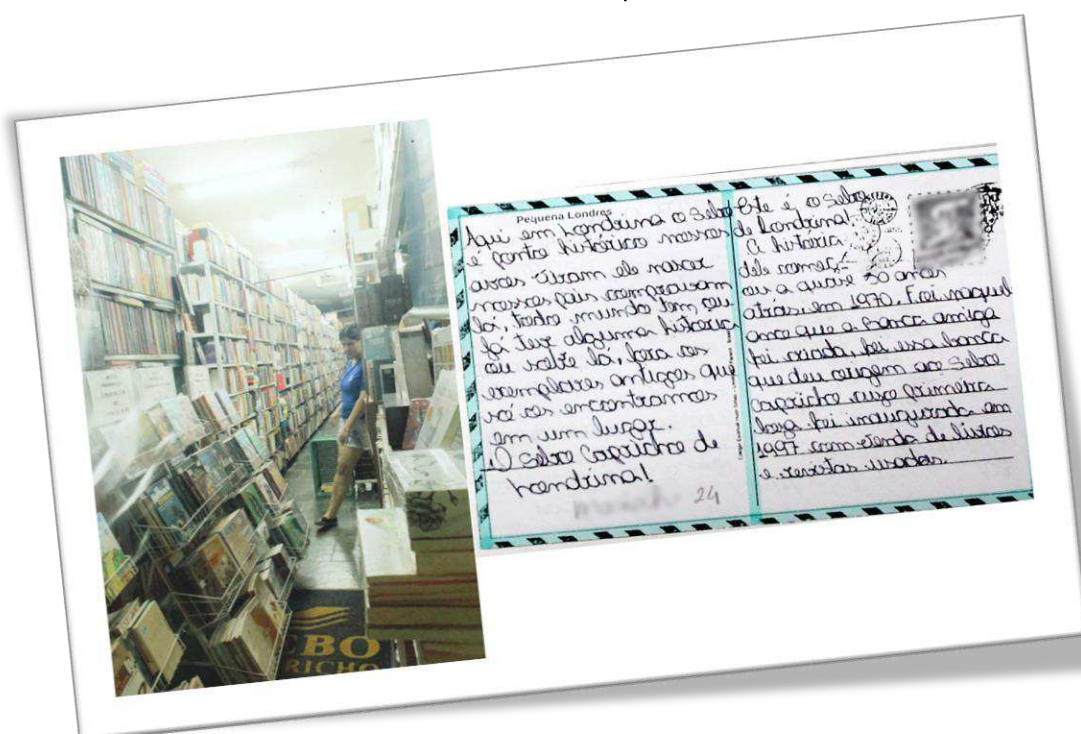 Pequena Londres
Aqui em Londrina o Sebo
é ponto histórico nossos
avós viram ele nascer
nossos pais compravam
lá, todo mundo tem ou
já teve alguma história
ou volte lá, fora os
exemplares antigos que
só os encontramos
em um lugar.
O Sebo Capricho de
Londrina!
24
Este é o Sebo
de Londrina!
A história
dele começ-
ou a quase 50 anos
atrás, em 1970. Foi naquel
ano que a Banca amiga
foi criada, foi essa banca
que deu origem ao Sebo
capricho cuja primeira
loja foi inaugurada em
1997 com venda de livros
e revistas usadas.
EBO
RICHO